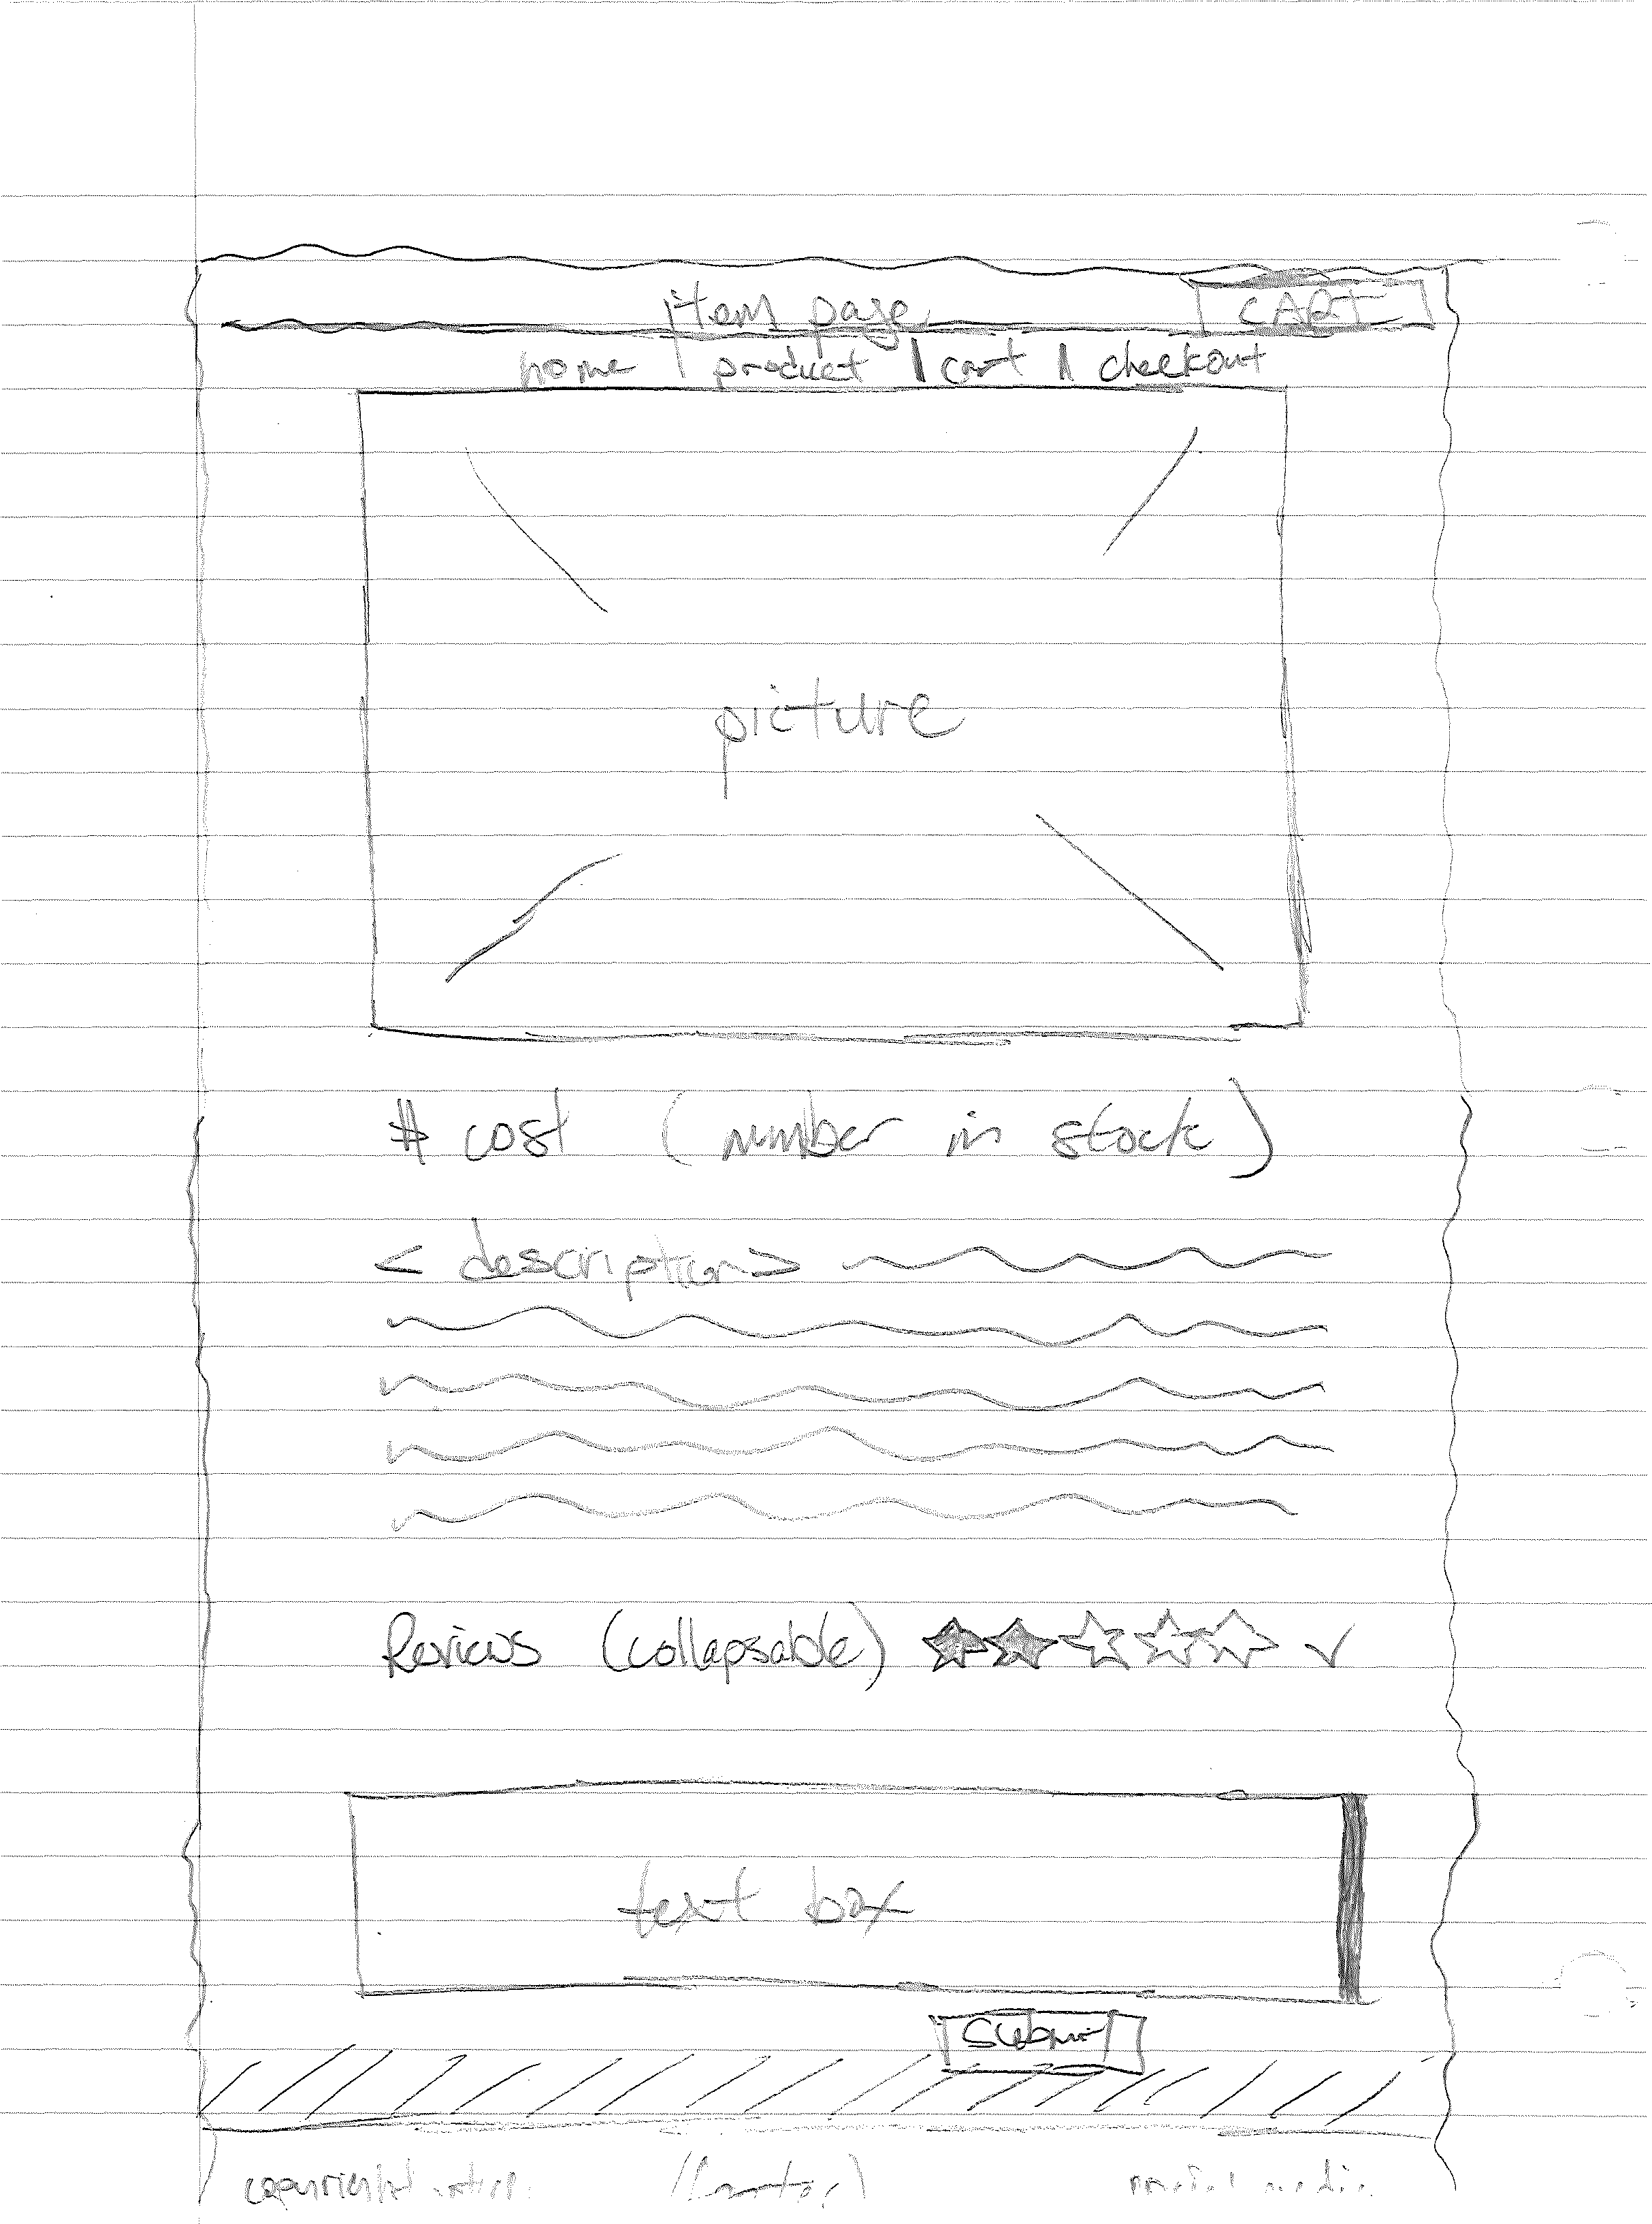 item page CART
home | product | cart | checkout
picture
# cost (number in stock)
< description >
Reviews (collapsable)
text box
Submit
(footer) social media